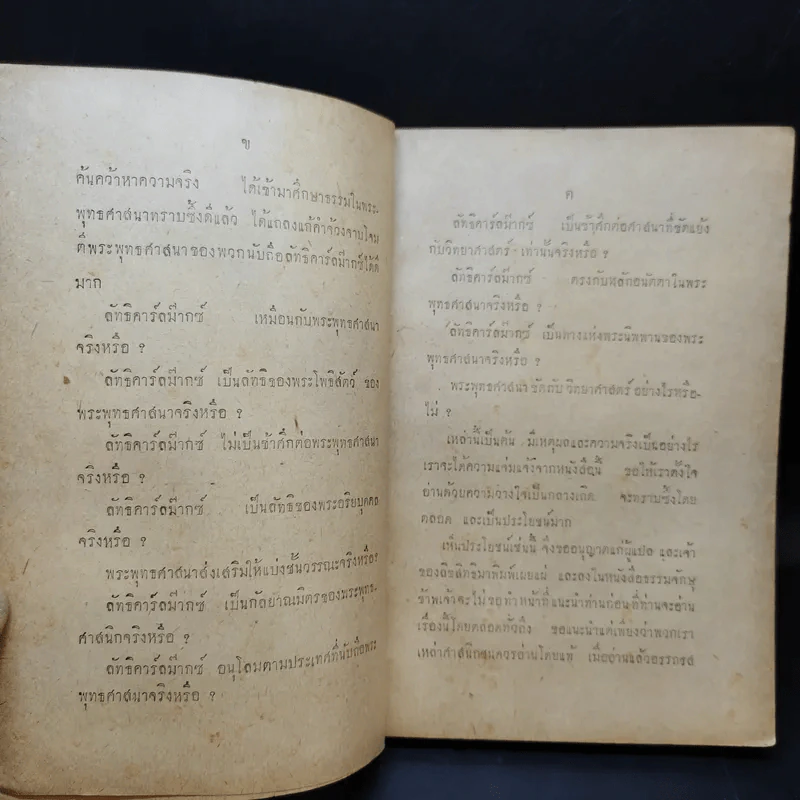 ข
ค้นคว้าหาความจริง ได้เข้ามาศึกษาธรรมในพระ-
พุทธศาสนาทราบซึ้งดีแล้ว ได้แถลงแก้คำจ้วงจาบโจม
ตีพระพุทธศาสนาของพวกนับถือลัทธิคาร์ลม๊ากซ์ได้ดี
มาก
ลัทธิคาร์ลม๊ากซ์ เหมือนกับพระพุทธศาสนา
จริงหรือ ?
ลัทธิคาร์ลม๊ากซ์ เป็นลัทธิของพระโพธิสัตว์ ของ
พระพุทธศาสนาจริงหรือ ?
ลัทธิคาร์ลม๊ากซ์ ไม่เป็นข้าศึกต่อพระพุทธศาสนา
จริงหรือ ?
ลัทธิคาร์ลม๊ากซ์ เป็นลัทธิของพระอริยบุคคล
จริงหรือ ?
พระพุทธศาสนาส่งเสริมให้แบ่งชั้นวรรณะจริงหรือ?
ลัทธิคาร์ลม๊ากซ์ เป็นกัลยาณมิตรของพระพุทธ-
ศาสนิกจริงหรือ ?
ลัทธิคาร์ลม๊ากซ์ อนุโลมตามประเทศที่นับถือพระ
พุทธศาสนาจริงหรือ ?
ค
ลัทธิคาร์ลม๊ากซ์ เป็นข้าศึกต่อศาสนาที่ขัดแย้ง
กับวิทยาศาสตร์ เท่านั้นจริงหรือ ?
ลัทธิคาร์ลม๊ากซ์ ตรงกับหลักอนัตตาในพระ
พุทธศาสนาจริงหรือ ?
ลัทธิคาร์ลม๊ากซ์ เป็นทางแห่งพระนิพพานของพระ
พุทธศาสนาจริงหรือ ?
พระพุทธศาสนาขัดกับวิทยาศาสตร์อย่างไรหรือ-
ไม่ ?
เหล่านี้เป็นต้น มีเหตุผลและความจริงเป็นอย่างไร
เราจะได้ความแจ่มแจ้งจากหนังสือนี้ ขอให้เราตั้งใจ
อ่านด้วยความวางใจเป็นกลางเถิด จะทราบซึ้งโดย
ตลอด และเป็นประโยชน์มาก
เห็นประโยชน์เช่นนี้ จึงขออนุญาตแก่ผู้แปล และเจ้า
ของลิขสิทธิมาพิมพ์เผยแผ่ และลงในหนังสือธรรมจักษุ
ข้าพเจ้าจะไม่ขอทำหน้าที่แนะนำท่านก่อนที่ท่านจะอ่าน
เรื่องนี้โดยตลอดทั่วถึง ขอแนะนำแต่เพียงว่าพวกเรา
เหล่าศาสนิกชนควรอ่านโดยแท้ เมื่ออ่านแล้วอรรถรส